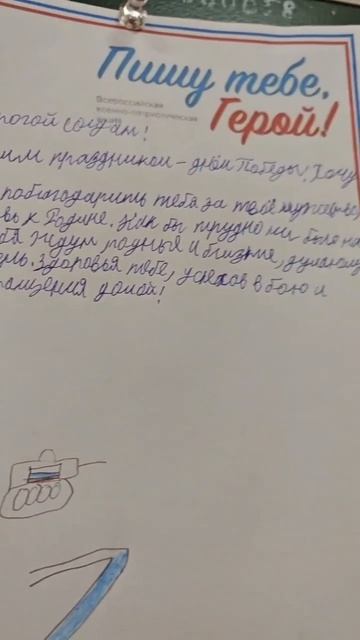 Пишу тебе,
Герой!
Всероссийская
военно-патриотическая
акция
рогой солдат!
им праздником - днём Победы! Хочу
поблагодарить тебя за твоё
вь к Родине. Как бы трудно ни было
ждут родные и близкие,
Здоровья тебе, успехов в бою и
ращения домой!